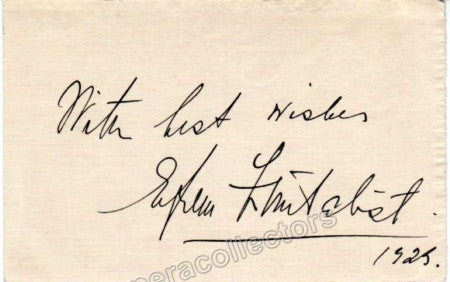 With best wishes
Efrem Zimbalist.
1925.
operacollectors